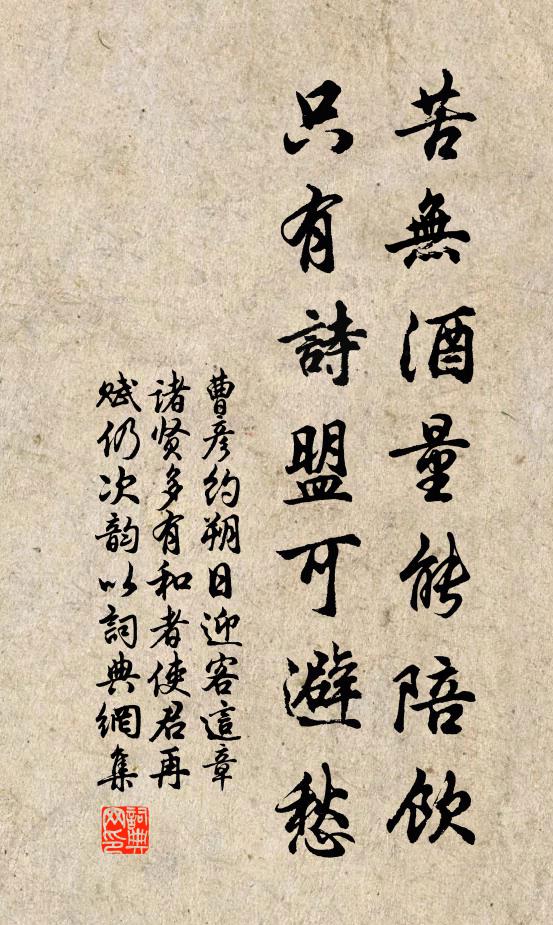 苦無酒量能陪飲
只有詩盟可避愁
曹彦約朔日迎客這章
諸贤多有和者使君再
赋仍次韵以詞典網集
詞典
网印